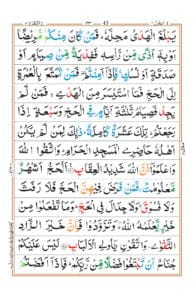 يَبْلُغَ الْهَدْيُ مَحِلَّهٗ ؕ فَمَنْ كَانَ مِنْكُمْ مَّرِيْضًا
اَوْ بِهٖۤ اَذًى مِّنْ رَّاْسِهٖ فَفِدْيَةٌ مِّنْ صِيَامٍ اَوْ
صَدَقَةٍ اَوْ نُسُكٍ ۚ فَاِذَاۤ اَمِنْتُمْ ٙ فَمَنْ تَمَتَّعَ بِالْعُمْرَةِ
اِلَى الْحَجِّ فَمَا اسْتَيْسَرَ مِنَ الْهَدْيِ ۚ فَمَنْ لَّمْ
يَجِدْ فَصِيَامُ ثَلٰثَةِ اَيَّامٍ فِي الْحَجِّ وَسَبْعَةٍ اِذَا
رَجَعْتُمْ ؕ تِلْكَ عَشَرَةٌ كَامِلَةٌ ؕ ذٰلِكَ لِمَنْ لَّمْ يَكُنْ
اَهْلُهٗ حَاضِرِي الْمَسْجِدِ الْحَرَامِ ؕ وَاتَّقُوا اللّٰهَ
وَاعْلَمُوْۤا اَنَّ اللّٰهَ شَدِيْدُ الْعِقَابِ ۟ اَلْحَجُّ اَشْهُرٌ
مَّعْلُوْمٰتٌ ۚ فَمَنْ فَرَضَ فِيْهِنَّ الْحَجَّ فَلَا رَفَثَ
وَلَا فُسُوْقَ ۙ وَلَا جِدَالَ فِي الْحَجِّ ؕ وَمَا تَفْعَلُوْا مِنْ
خَيْرٍ يَّعْلَمْهُ اللّٰهُ ؕؔ وَتَزَوَّدُوْا فَاِنَّ خَيْرَ الزَّادِ
التَّقْوٰى ؗ وَاتَّقُوْنِ يٰۤاُولِي الْاَلْبَابِ ۟ لَيْسَ عَلَيْكُمْ
جُنَاحٌ اَنْ تَبْتَغُوْا فَضْلًا مِّنْ رَّبِّكُمْ ؕ فَاِذَاۤ اَفَضْتُمْ